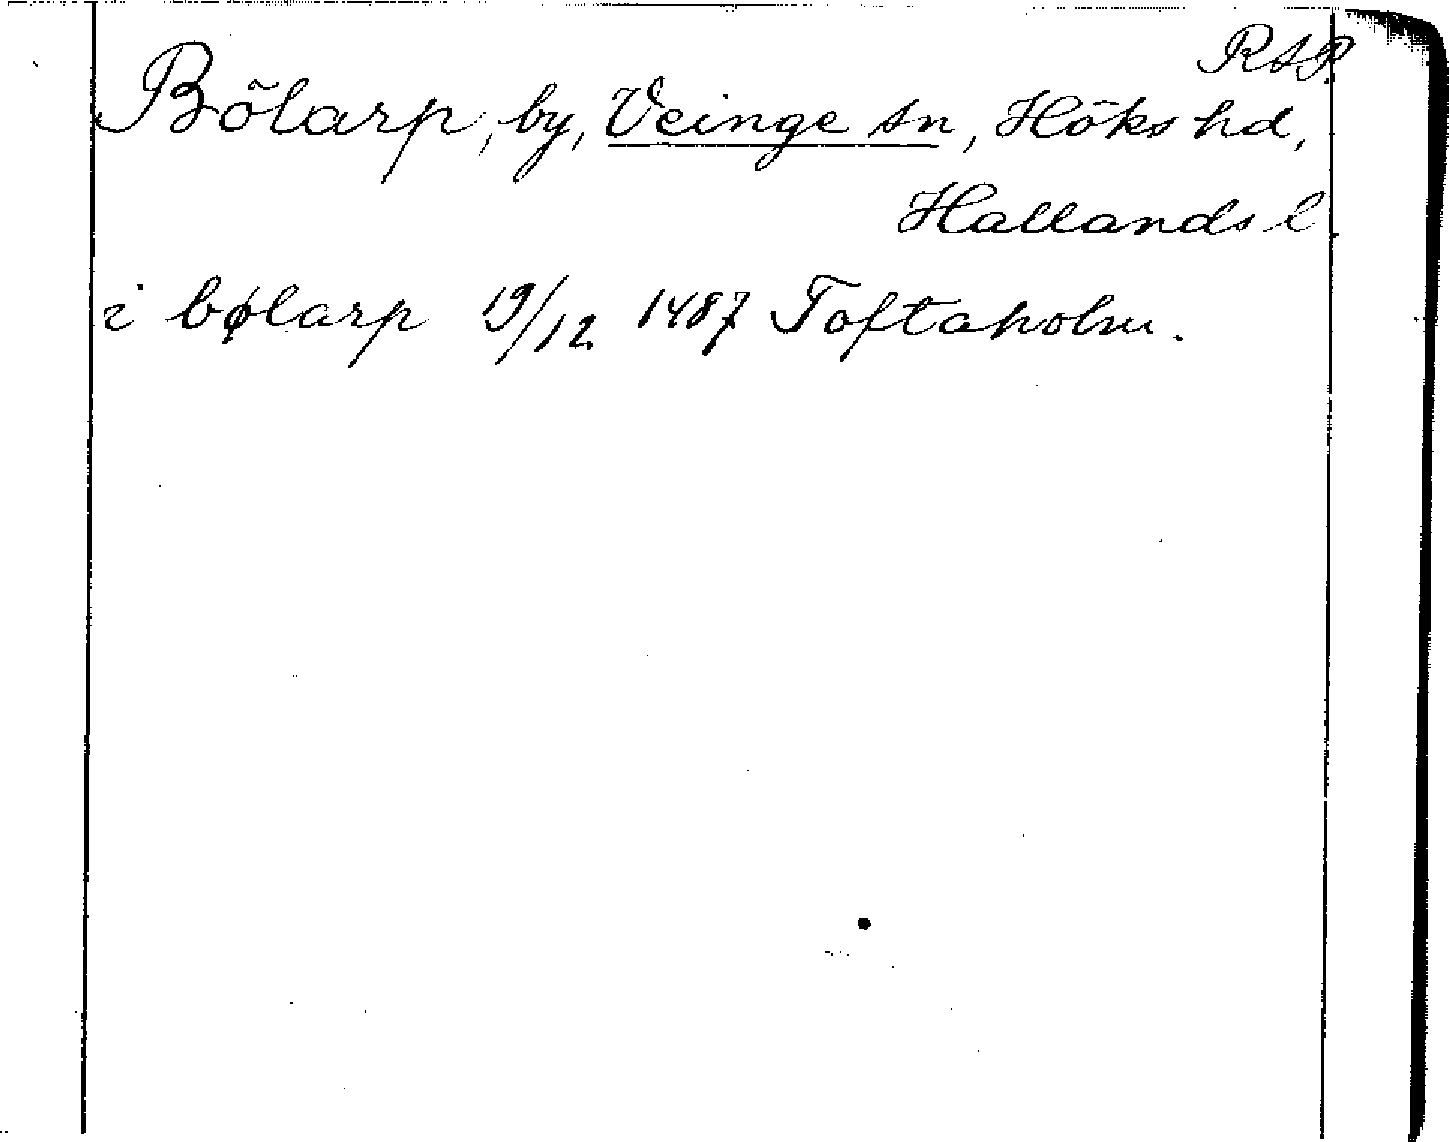 RAP.
Bölarp, by, Veinge sn, Höks hd,
Hallands l.
i bølarp 19/12 1487 Toftaholm.